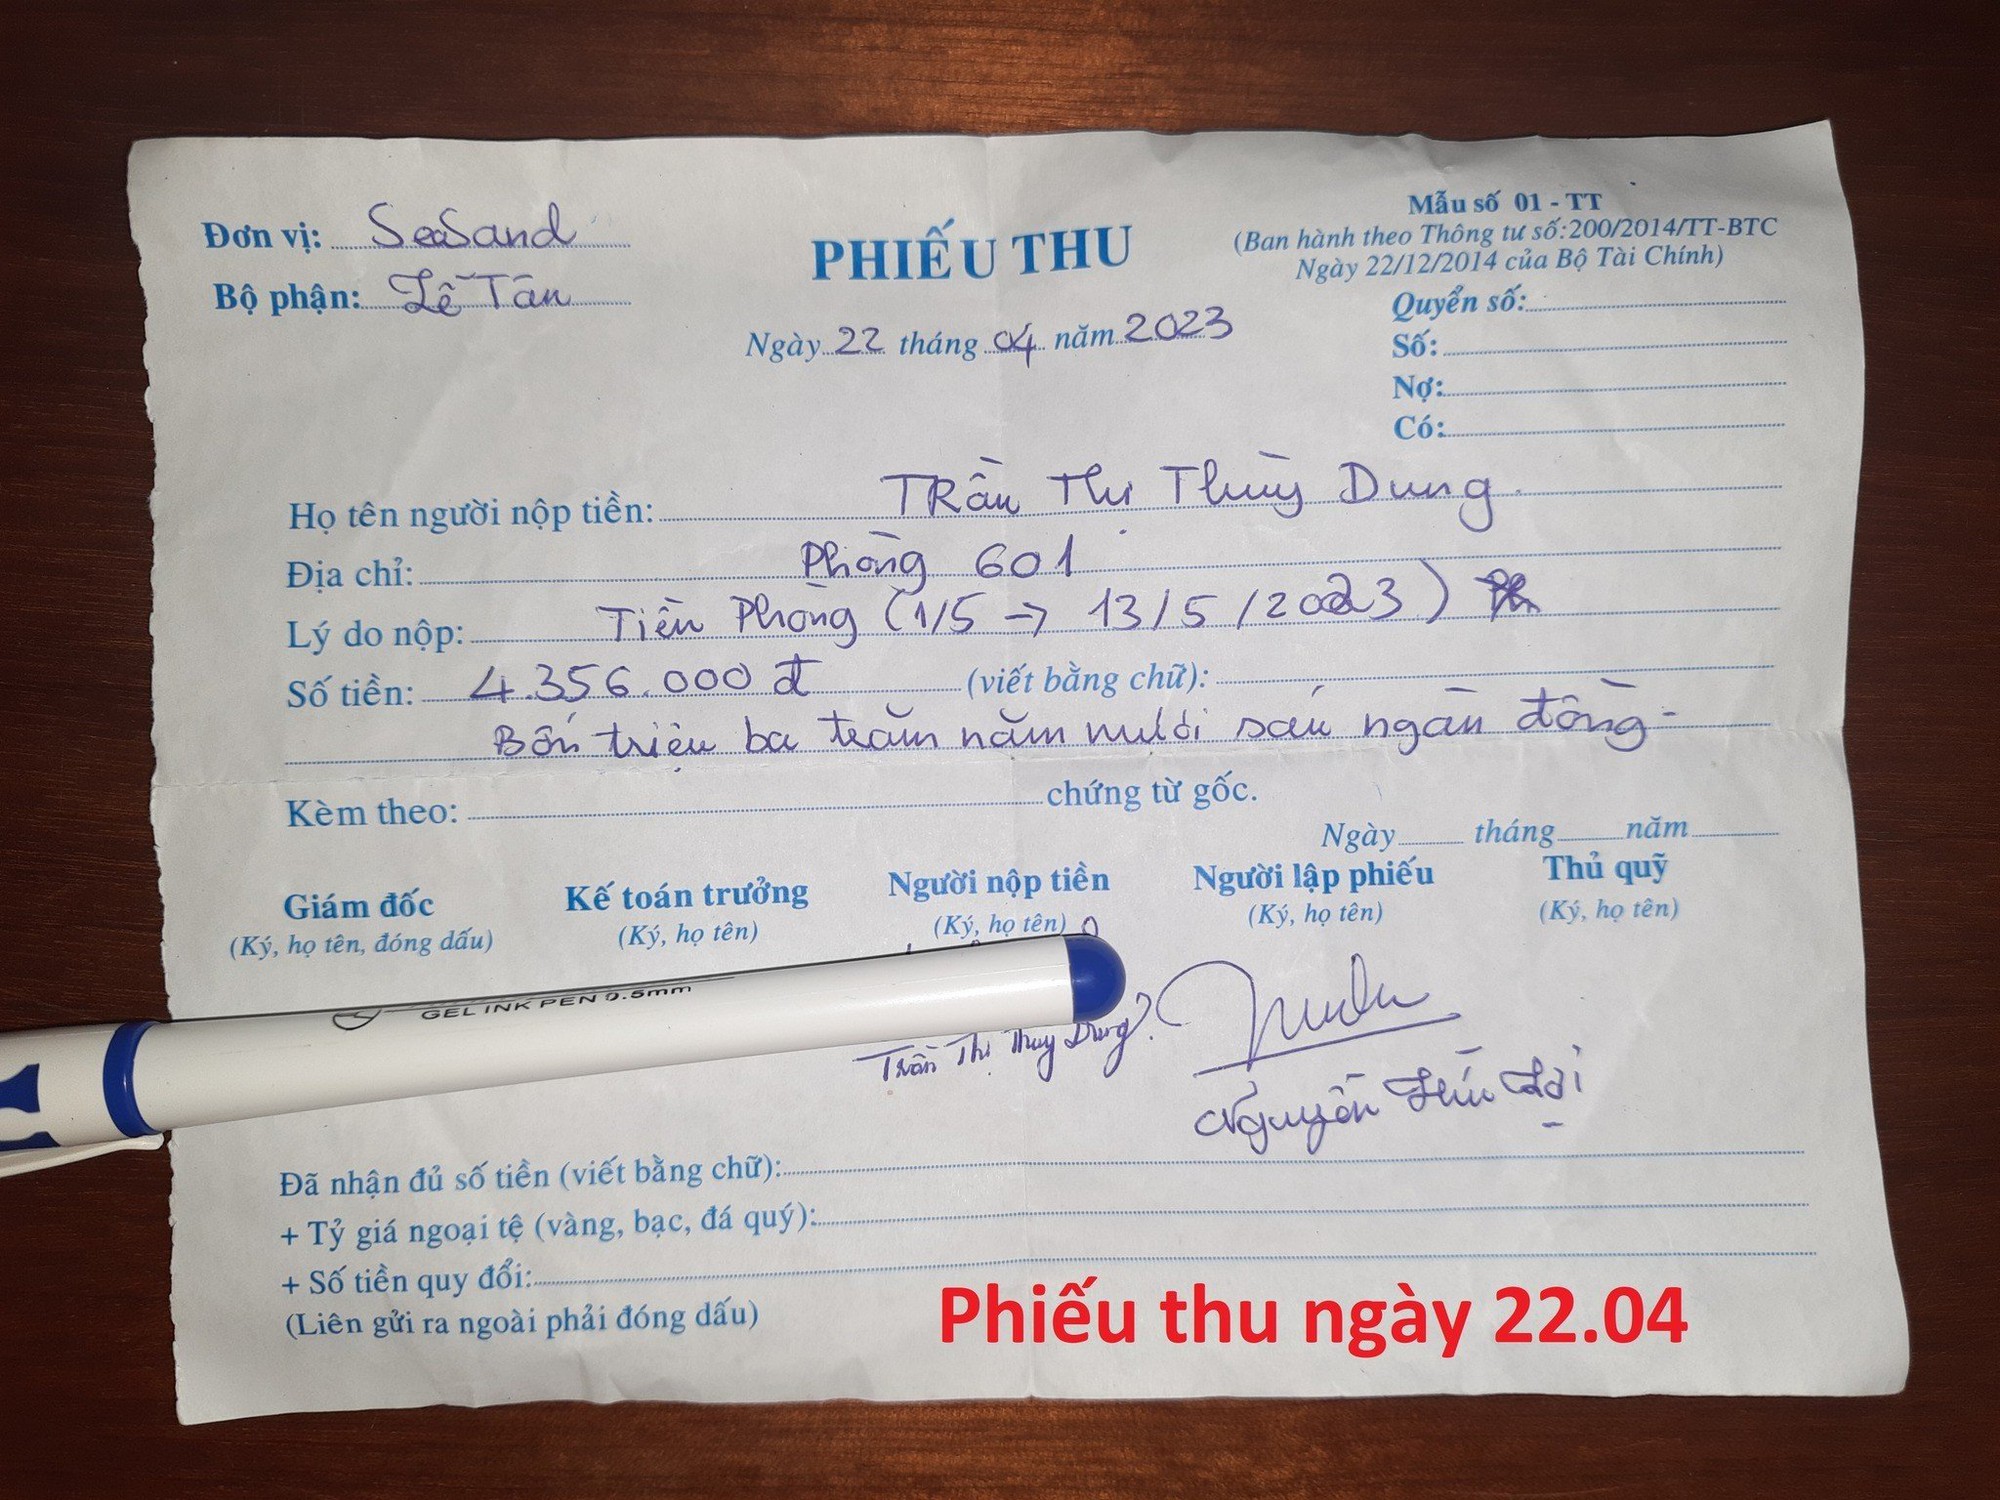 Đơn vị: SeaSand
Bộ phận: Lễ Tân
PHIẾU THU
Ngày 22 tháng 04 năm 2023
Mẫu số 01 - TT
(Ban hành theo Thông tư số:200/2014/TT-BTC
Ngày 22/12/2014 của Bộ Tài Chính)
Quyển số:
Số:
Nợ:
Có:
Họ tên người nộp tiền: Trần Thị Thùy Dung
Địa chỉ: Phòng 601
Lý do nộp: Tiền Phòng (1/5 → 13/5/2023)
Số tiền: 4.356.000 đ (viết bằng chữ):
Bốn triệu ba trăm năm mươi sáu ngàn đồng-
Kèm theo: chứng từ gốc.
Ngày tháng năm
Giám đốc Kế toán trưởng Người nộp tiền Người lập phiếu Thủ quỹ
(Ký, họ tên, đóng dấu) (Ký, họ tên) (Ký, họ tên) (Ký, họ tên) (Ký, họ tên)
GEL INK PEN 0.5mm
Trần Thị Thùy Dung
Nguyễn Lợi
Đã nhận đủ số tiền (viết bằng chữ):
+ Tỷ giá ngoại tệ (vàng, bạc, đá quý):
+ Số tiền quy đổi:
(Liên gửi ra ngoài phải đóng dấu)
Phiếu thu ngày 22.04